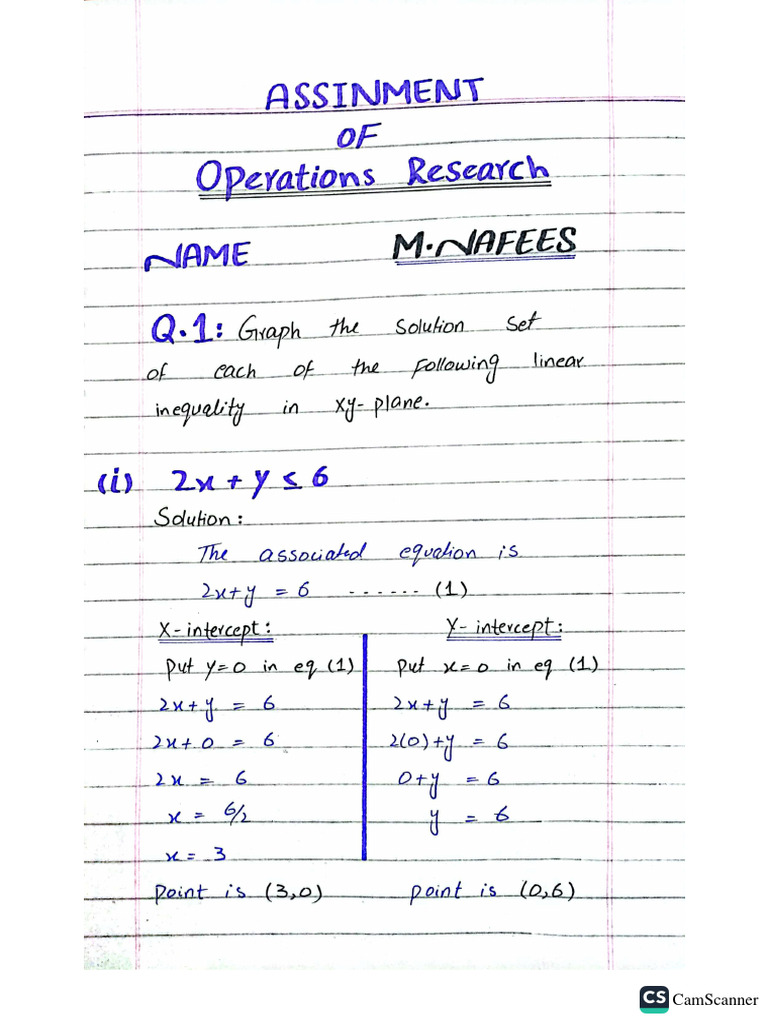 ASSINMENT
OF
Operations Research
NAME M.NAFEES
Q.1: Graph the solution set
of each of the following linear
inequality in xy-plane.
(i) 2x + y ≤ 6
Solution:
The associated equation is
2x+y = 6 ...... (1)
X-intercept: Y-intercept:
Put y=0 in eq (1) Put x=0 in eq (1)
2x+y = 6 2x+y = 6
2x+0 = 6 2(0)+y = 6
2x = 6 0+y = 6
x = 6/2 y = 6
x = 3
Point is (3,0) Point is (0,6)
CS CamScanner